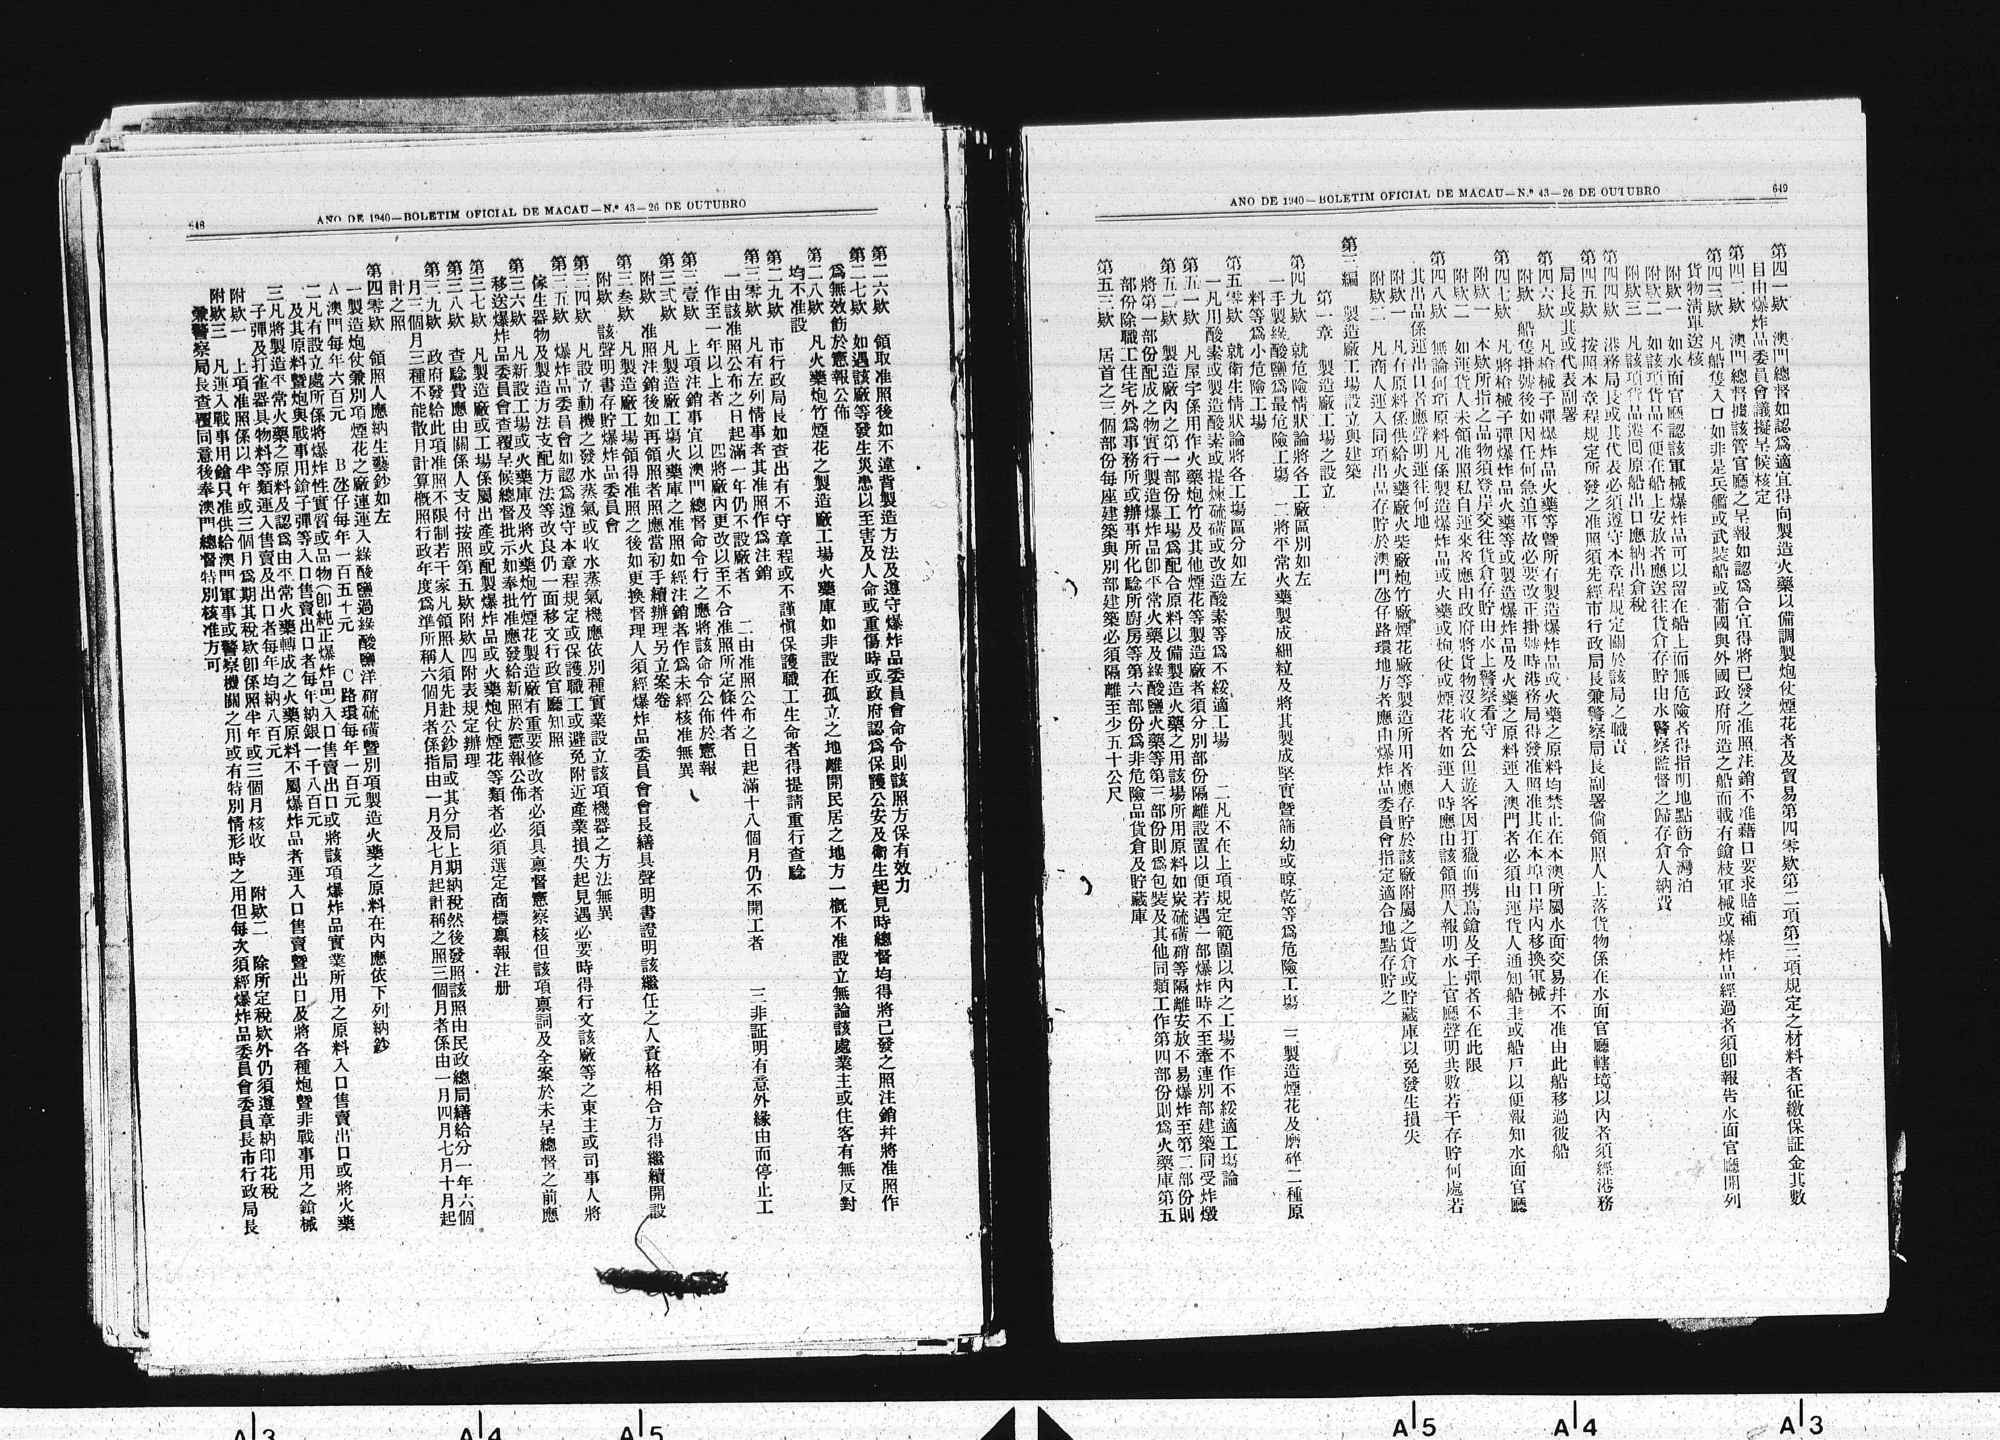 648
ANO DE 1940—BOLETIM OFICIAL DE MACAU—N.º 43—26 DE OUTUBRO
第二六欵　領取准照後如不違背製造方法及遵守爆炸品委員會命令則該照方保有效力
第二七欵　如遇該廠等發生災患以至害及人命或重傷時或政府認爲保護公安及衛生起見時總督均得將已發之照注銷幷將准照作
爲無效飭於憲報公佈
第二八欵　凡火藥炮竹煙花之製造廠工場火藥庫如非設在孤立之地離開民居之地方一概不准設立無論該處業主或住客有無反對
均不准設
第二九欵　市行政局長如查出有不守章程或不謹愼保護職工生命者得提請重行查騐
第三零欵　凡有左列情事者其准照作爲注銷
一由該准照公布之日起滿一年仍不設廠者　二由准照公布之日起滿十八個月仍不開工者　三非証明有意外緣由而停止工
作至一年以上者　四將廠內更改以至不合准照所定條件者
第三壹欵　上項注銷事宜以澳門總督命令行之應將該命令公佈於憲報
第三弍欵　凡製造廠工塲火藥庫之准照如經注銷者作爲未經核准無異
附欵　准照注銷後如再領照者照應當初手續辦理另立案卷
第三叁欵　凡製造廠工場領得准照之後如更換督理人須經爆炸品委員會會長繕具聲明書證明該繼任之人資格相合方得繼續開設
附欵　該聲明書存貯爆炸品委員會
第三四欵　凡設立動機之發水蒸氣或收水蒸氣機應依別種實業設立該項機器之方法無異
第三五欵　爆炸品委員會如認爲遵守本章程規定或保護職工或避免附近產業損失起見遇必要時得行文該廠等之東主或司事人將
傢生器物及製造方法支配方法等改良仍一面移文行政官廳知照
第三六欵　凡新設工場或火藥庫及將火藥炮竹煙花製造廠有重要修改者必須具稟督憲察核但該項稟詞及全案於未呈總督之前應
移送爆炸品委員會查覆呈候總督批示如奉批准應發給新照於憲報公佈
第三七欵　凡製造廠或工場係屬出產或配製爆炸品或火藥炮仗煙花等類者必須選定商標稟報注册
第三八欵　查騐費應由關係人支付按照第五欵附欵四附表規定辦理
第三九欵　政府發給此項准照不限制若干家凡領照人須先赴公鈔局或其分局上期納稅然後發照該照由民政總局繕給分一年六個
月三個月三種不能散月計算概照行政年度爲準所稱六個月者係指由一月及七月起計稱之照三個月者係由一月四月七月十月起
計之照
第四零欵　領照人應納生藝鈔如左
一製造炮仗兼別項煙花之廠連運入綠酸鹽過綠酸鹽洋硝硫磺暨別項製造火藥之原料在內應依下列納鈔
A澳門每年六百元　B氹仔每年一百五十元　C路環每年一百元
二凡有設立處所係將爆炸性實質或品物（卽純正爆炸品）入口售賣出口或將該項爆炸品實業所用之原料入口售賣出口或將火藥
及其原料暨炮與戰事用鎗子彈等入口售賣出口者每年納銀一千八百元
三凡將製造平常火藥之原料及認爲由平常火藥轉成之火藥原料不屬爆炸品者運入口售賣暨出口及將各種炮暨非戰事用之鎗械
子彈及打雀器具物料等類運入售賣及出口者每年均納八百元
附欵一　上項准照係以半年或三個月爲期其稅欵卽係照半年或三個月核收　附欵二　除所定稅欵外仍須遵章納印花稅
附欵三　凡運入戰事用鎗只准供給澳門軍事或警察機關之用或有特別情形時之用但每次須經爆炸品委員會委員長市行政局長
兼警察局長查覆同意後奉澳門總督特別核准方可
ANO DE 1940—BOLETIM OFICIAL DE MACAU—N.º 43—26 DE OUTUBRO
649
第四一欵　澳門總督如認爲適宜得向製造火藥以備調製炮仗煙花者及貿易第四零欵第二項第三項規定之材料者征繳保証金其數
目由爆炸品委員會議擬呈候核定
第四二欵　澳門總督據該管官廳之呈報如認爲合宜得將已發之准照注銷不准藉口要求賠補
第四三欵　凡船隻入口如非是兵艦或武裝船或葡國與外國政府所造之船而載有鎗枝軍械或爆炸品經過者須卽報告水面官廳開列
貨物淸單送核
附欵一　如水面官廳認該軍械爆炸品可以留在船上而無危險者得指明地點飭令灣泊
附欵二　如該項貨品不便在船上安放者應送往貨倉存貯由水警察監督之歸存倉人納費
附欵三　凡該項貨品港囘原船出口應納出倉稅
第四四欵　港務局長或其代表必須遵守本章程規定關於該局之職責
第四五欵　按照本章程規定所發之准照須先經市行政局長兼警察局長副署倘領照人上落貨物係在水面官廳轄境以內者須經港務
局長或其或代表副署
第四六欵　凡槍械子彈爆炸品火藥等暨所有製造爆炸品或火藥之原料均禁止在本澳所屬水面交易幷不准由此船移過彼船
附欵　船隻掛號後如因任何急迫事故必要改正掛號時港務局得發准照准其在本埠口岸內移換軍械
第四七欵　凡將槍械子彈爆炸品火藥等或製造爆炸品及火藥之原料運入澳門者必須由運貨人通知船主或船戶以便報知水面官廳
附欵一　本欵所指之品物須登岸交往貨倉存貯由水上警察看守
附欵二　如運貨人未領准照私自運來者應由政府將貨物沒收充公但遊客因打獵而携鳥鎗及子彈者不在此限
第四八欵　無論何項原料凡係製造爆炸品或火藥或炮仗或煙花者如運入時應由該領照人報明水上官廳聲明共數若干存貯何處若
其出品係運出口者應聲明運往何地
附欵一　凡存原料係供給火藥廠火柴廠炮竹廠煙花廠等製造所用者應存貯於該廠附屬之貨倉或貯藏庫以免發生損失
附欵二　凡商人運入同項出品存貯於澳門氹仔路環地方者應由爆炸品委員會指定適合地點存貯之
第三編　製造廠工場設立與建築
第一章　製造廠工場之設立
第四九欵　就危險情狀論將各工廠區別如左
一手製綠酸鹽爲最危險工塲　二將平常火藥製成細粒及將其製成堅實暨篩幼或晾乾等爲危險工塲　三製造煙花及磨碎二種原
料等爲小危險工場
第五零欵　就衛生情狀論將各工場區分如左
一凡用酸素或製造酸素或提煉硫磺或改造酸素等爲不綏適工場　二凡不在上項規定範圍以內之工場不作不綏適工塲論
第五一欵　凡屋宇係用作火藥炮竹及其他煙花等製造廠者須分別部份隔離設置以便若遇一部爆炸時不至牽連別部建築同受炸燬
第五二欵　製造廠內之第一部份工場爲配合原料以備製造火藥之用該場所用原料如炭硫磺硝等隔離安放不易爆炸至第二部份則
將第一部份配成之物實行製造爆炸品卽平常火藥及綠酸鹽火藥等第三部份則爲包裝及其他同類工作第四部份則爲火藥庫第五
部份除職工住宅外爲事務所或辦事所化騐所廚房等第六部份爲非危險品貨倉及貯藏庫
第五三欵　居首之三個部份每座建築與別部建築必須隔離至少五十公尺
A3
A4
A5
A5
A4
A3